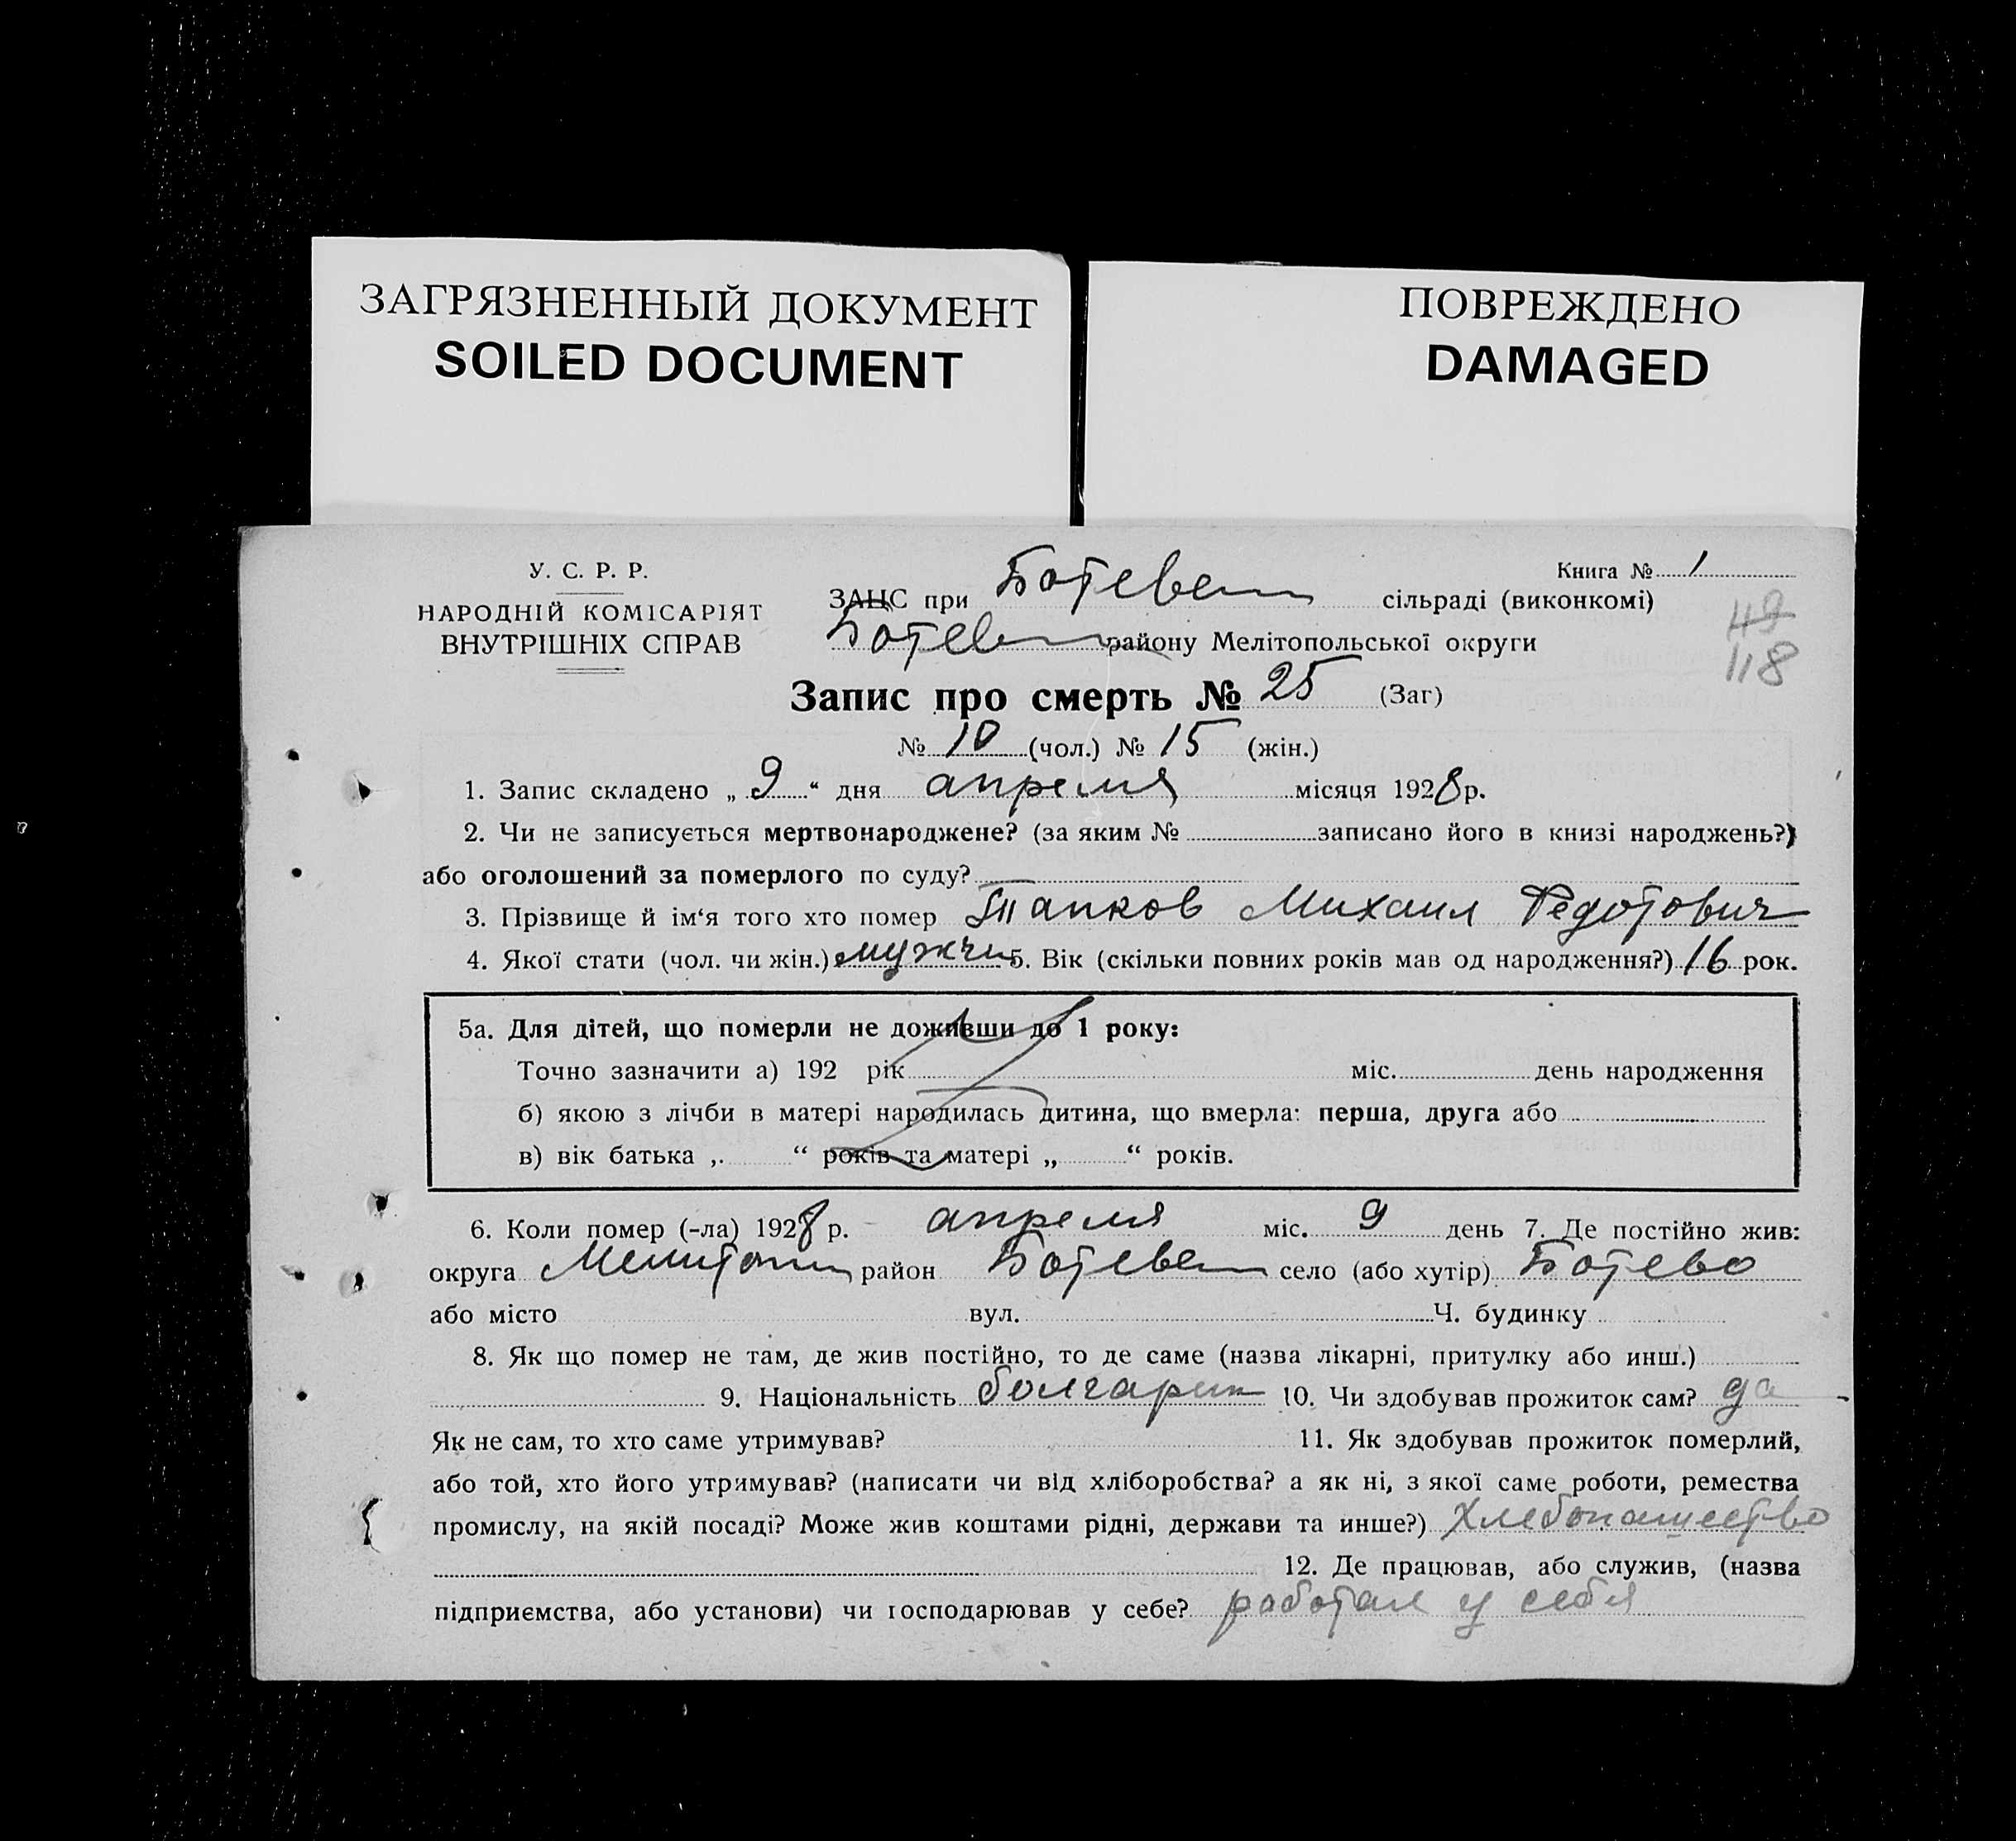 ЗАГРЯЗНЕННЫЙ ДОКУМЕНТ
SOILED DOCUMENT
ПОВРЕЖДЕНО
DAMAGED
У. С. Р. Р.
НАРОДНІЙ КОМІСАРІЯТ
ВНУТРІШНІХ СПРАВ
Книга № 1
ЗАЦС при Ботевск сільраді (виконкомі)
Ботев району Мелітопольської округи
49
118
Запис про смерть № 25 (Заг)
№ 10 (чол.) № 15 (жін.)
1. Запис складено „ 9 “ дня апреля місяця 1928 р.
2. Чи не записується мертвонароджене? (за яким № записано його в книзі народжень?)
або оголошений за померлого по суду?
3. Прізвище й ім‘я того хто помер Тапков Михаил Федотович
4. Якої стати (чол. чи жін.) мужчин 5. Вік (скільки повних років мав од народження?) 16 рок.
5а. Для дітей, що померли не доживши до 1 року:
Точно зазначити а) 192 рік міс. день народження
б) якою з лічби в матері народилась дитина, що вмерла: перша, друга або
в) вік батька „ “ років та матері „ “ років.
6. Коли помер (-ла) 1928 р. апреля міс. 9 день 7. Де постійно жив:
округа Мелитоп район Ботевск село (або хутір) Ботево
або місто вул. Ч. будинку
8. Як що помер не там, де жив постійно, то де саме (назва лікарні, притулку або инш.)
9. Національність болгарин 10. Чи здобував прожиток сам? да
Як не сам, то хто саме утримував? 11. Як здобував прожиток померлий,
або той, хто його утримував? (написати чи від хліборобства? а як ні, з якої саме роботи, ремества
промислу, на якій посаді? Може жив коштами рідні, держави та инше?) хлебопашество
12. Де працював, або служив, (назва
підприємства, або установи) чи господарював у себе? работал у себя